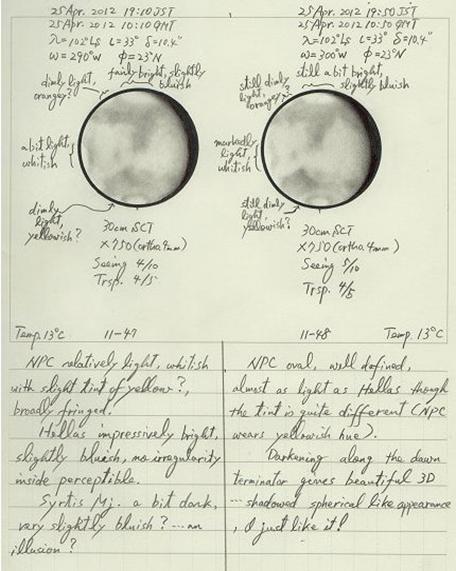 25 Apr. 2012 19:10 JST
25 Apr. 2012 10:10 GMT
λ=102°Ls ι=33° δ=10.4"
ω=290°W Φ=23°N
dimly light, orangey?
fairly bright, slightly
bluish
a bit light,
whitish
dimly
light,
yellowish?
30cm SCT
×750 (ortho. 4mm)
Seeing 4/10
Trsp. 4/5
Temp. 13°C
11-47
25 Apr. 2012 19:50 JST
25 Apr. 2012 10:50 GMT
λ=102°Ls ι=33° δ=10.4"
ω=300°W Φ=23°N
still dimly
light,
orangey?
still a bit bright,
slightly bluish
markedly
light,
whitish
still dimly
light,
yellowish?
30cm SCT
×750 (ortho. 4mm)
Seeing 5/10
Trsp. 4/5
11-48
Temp. 13°C
NPC relatively light, whitish
with slight tint of yellow?,
broadly fringed.
Hellas impressively bright,
slightly bluish, no irregularity
inside perceptible.
Syrtis Mj. a bit dark,
very slightly bluish? ... an
illusion?
NPC oval, well defined,
almost as light as Hellas though
the tint is quite different (NPC
wears yellowish hue).
Darkening along the dawn
terminator gives beautiful 3D
... shadowed spherical like appearance
, I just like it!